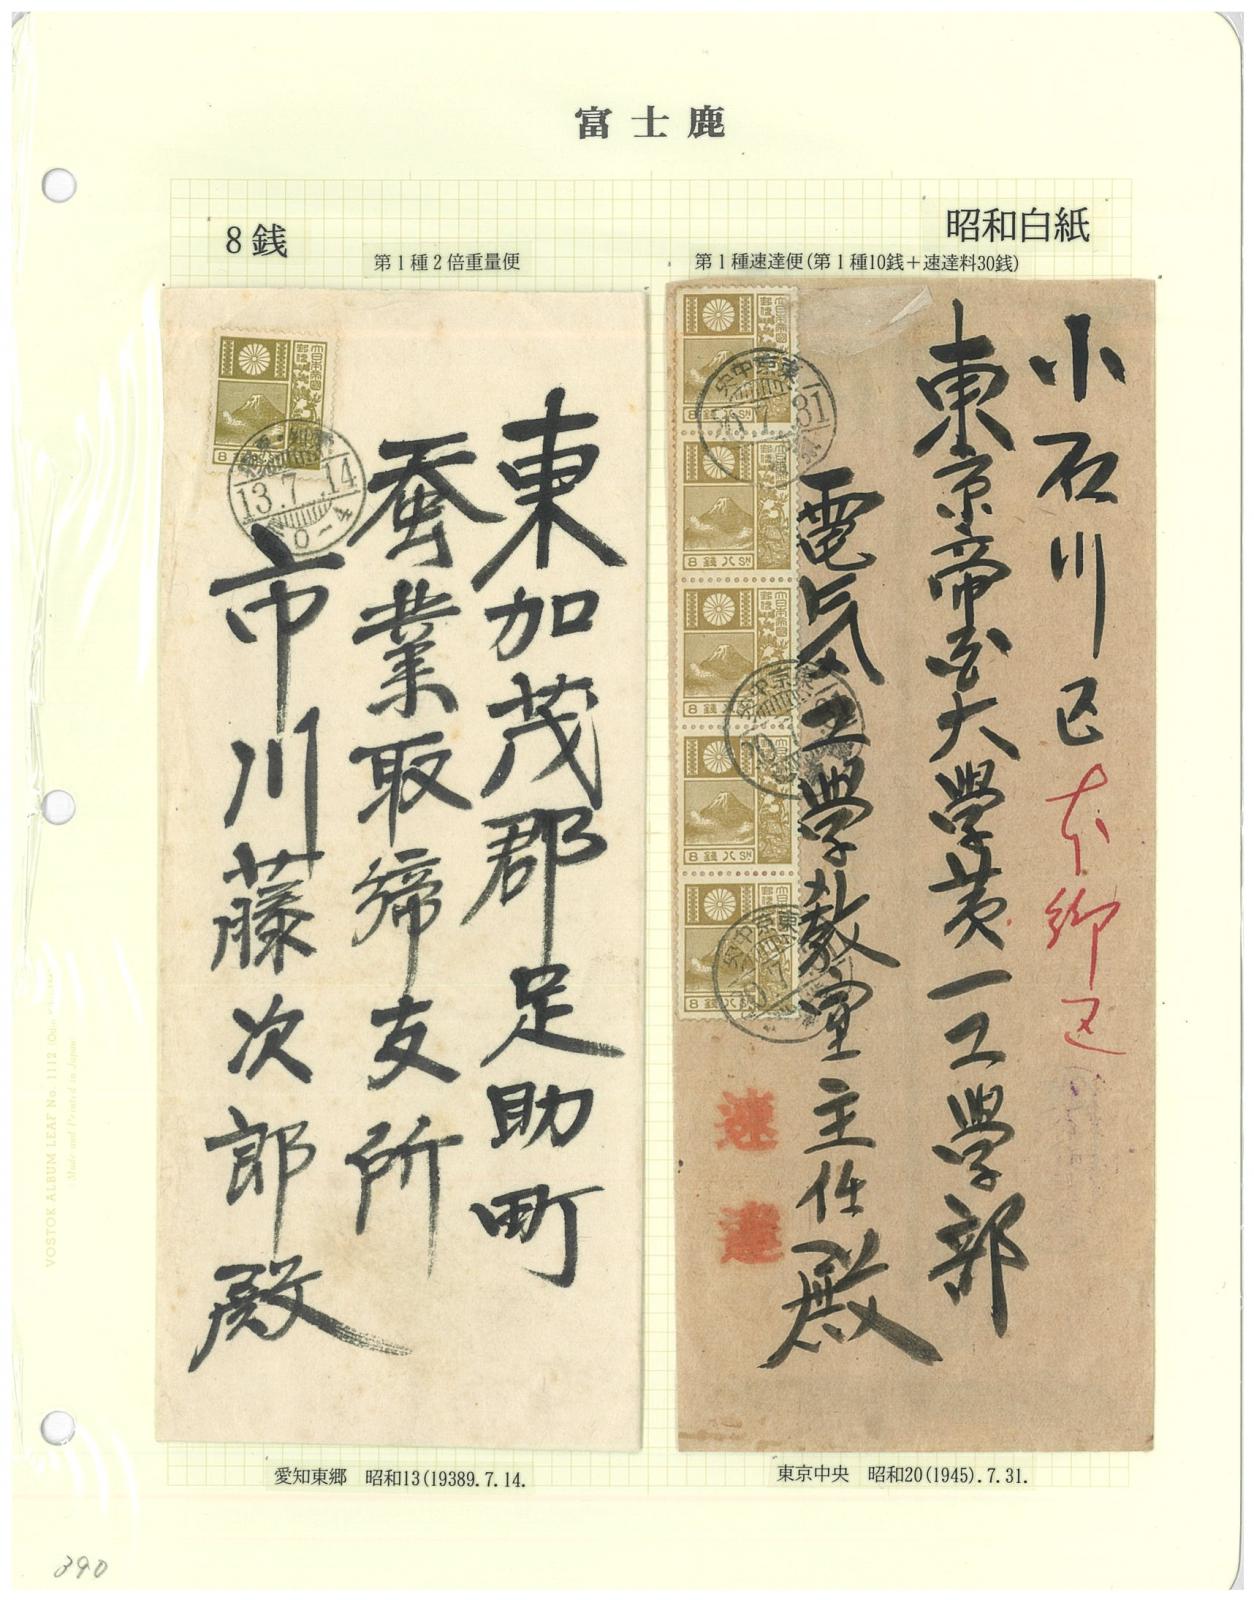 富士鹿
8銭
昭和白紙
第1種2倍重量便
第1種速達便(第1種10銭＋速達料30銭)
大日本帝國郵便
8銭八SN
13.7.14
0-4
東加茂郡足助町
蚕業取締支所
市川藤次郎殿
小石川区
本郷区
東京帝国大學第一工學部
電気工學教室主任殿
東京中央
20.7.31
速達
愛知東郷　昭和13(19389.7.14.
東京中央　昭和20(1945).7.31.
VOSTOK ALBUM LEAF No. 1112
Made and Printed in Japan
390